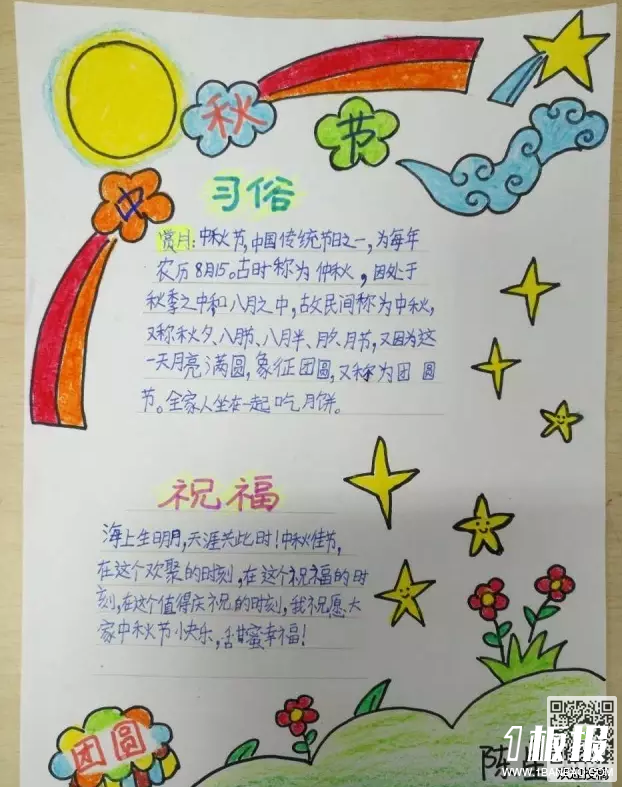 中秋节
习俗
赏月：中秋节，中国传统节日之一，为每年
农历8月15。古时称为仲秋，因处于
秋季之中和八月之中，故民间称为中秋，
又称秋夕、八月节、八月半、月夕、月节，又因为这
一天月亮满圆，象征团圆，又称为团圆
节。全家人坐在一起吃月饼。
祝福
海上生明月，天涯共此时！中秋佳节，
在这个欢聚的时刻，在这个祝福的时
刻，在这个值得庆祝的时刻，我祝愿大
家中秋节小快乐，甜蜜幸福！
团圆
陈
1板报
WWW.1BANBAO.COM
欢迎投稿